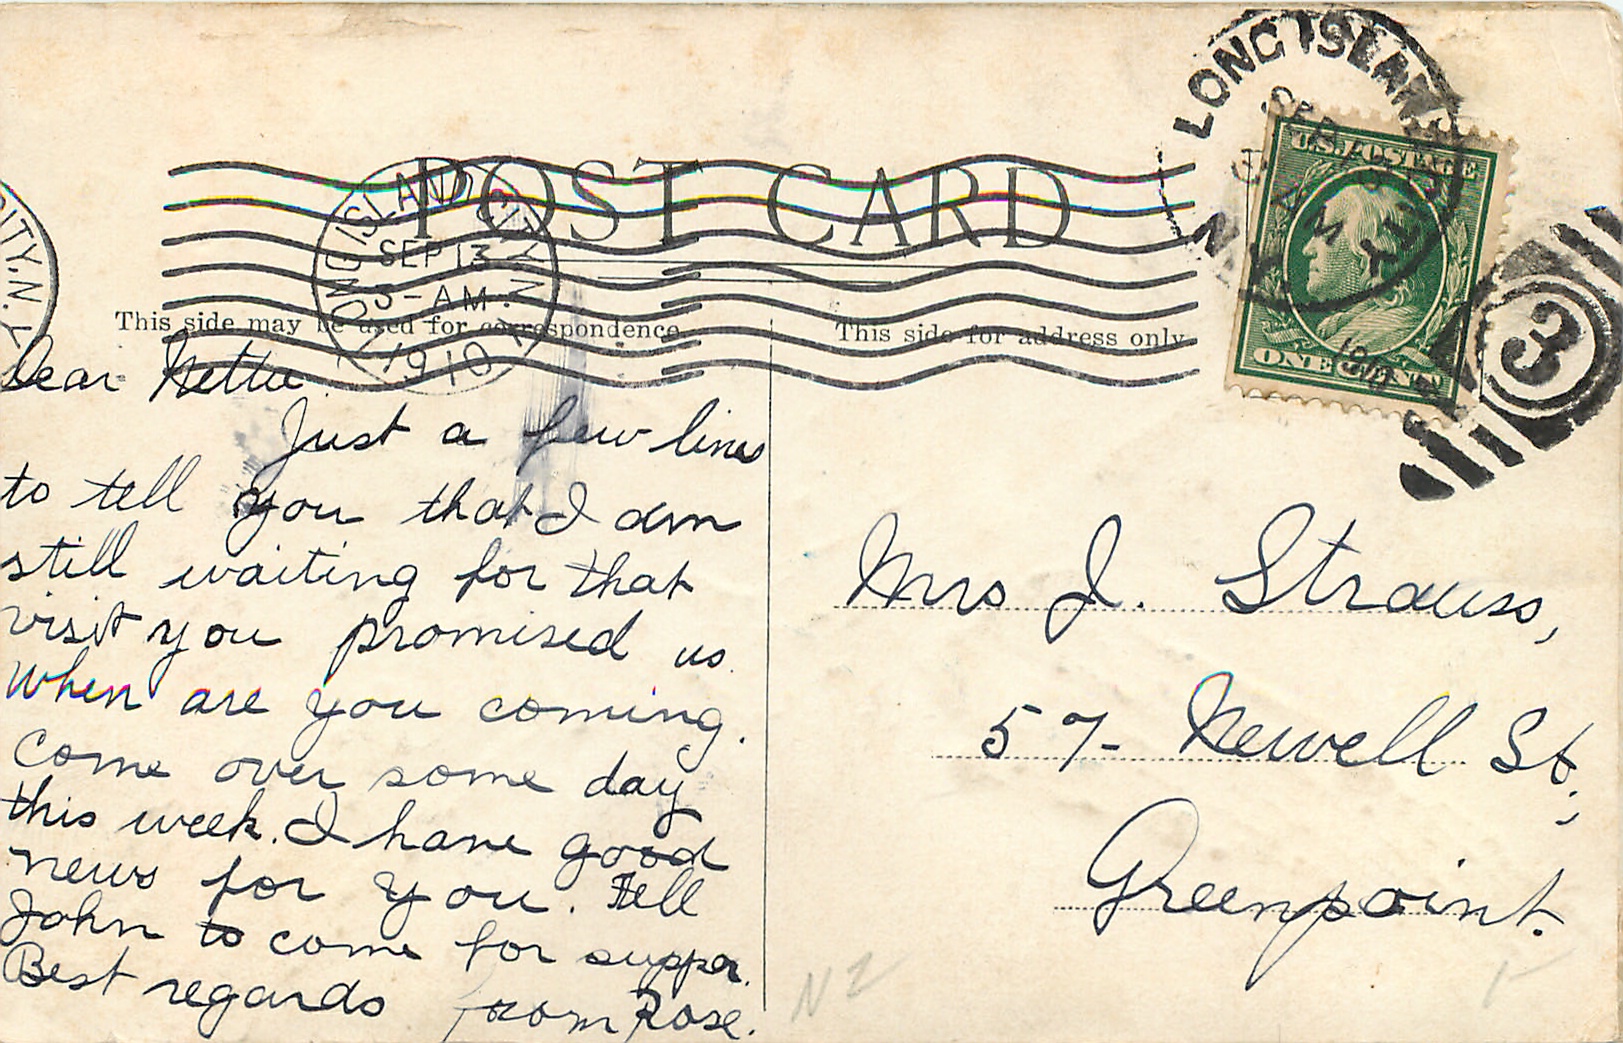 LONG ISLAND
SEP
M
N.Y.
1910
3
U.S. POSTAGE
ONE CENT
POST CARD
LONG ISLAND CITY, N.Y.
SEP 13
3-AM
1910
CITY, N.Y.
This side may be used for correspondence
This side for address only
Dear Nettie
Just a few lines
to tell you that I am
still waiting for that
visit you promised us.
When are you coming.
Come over some day
this week. I have good
news for you. Tell
John to come for supper.
Best regards from Rose.
Mrs J. Strauss,
57- Newell St.,
Greenpoint.
NZ